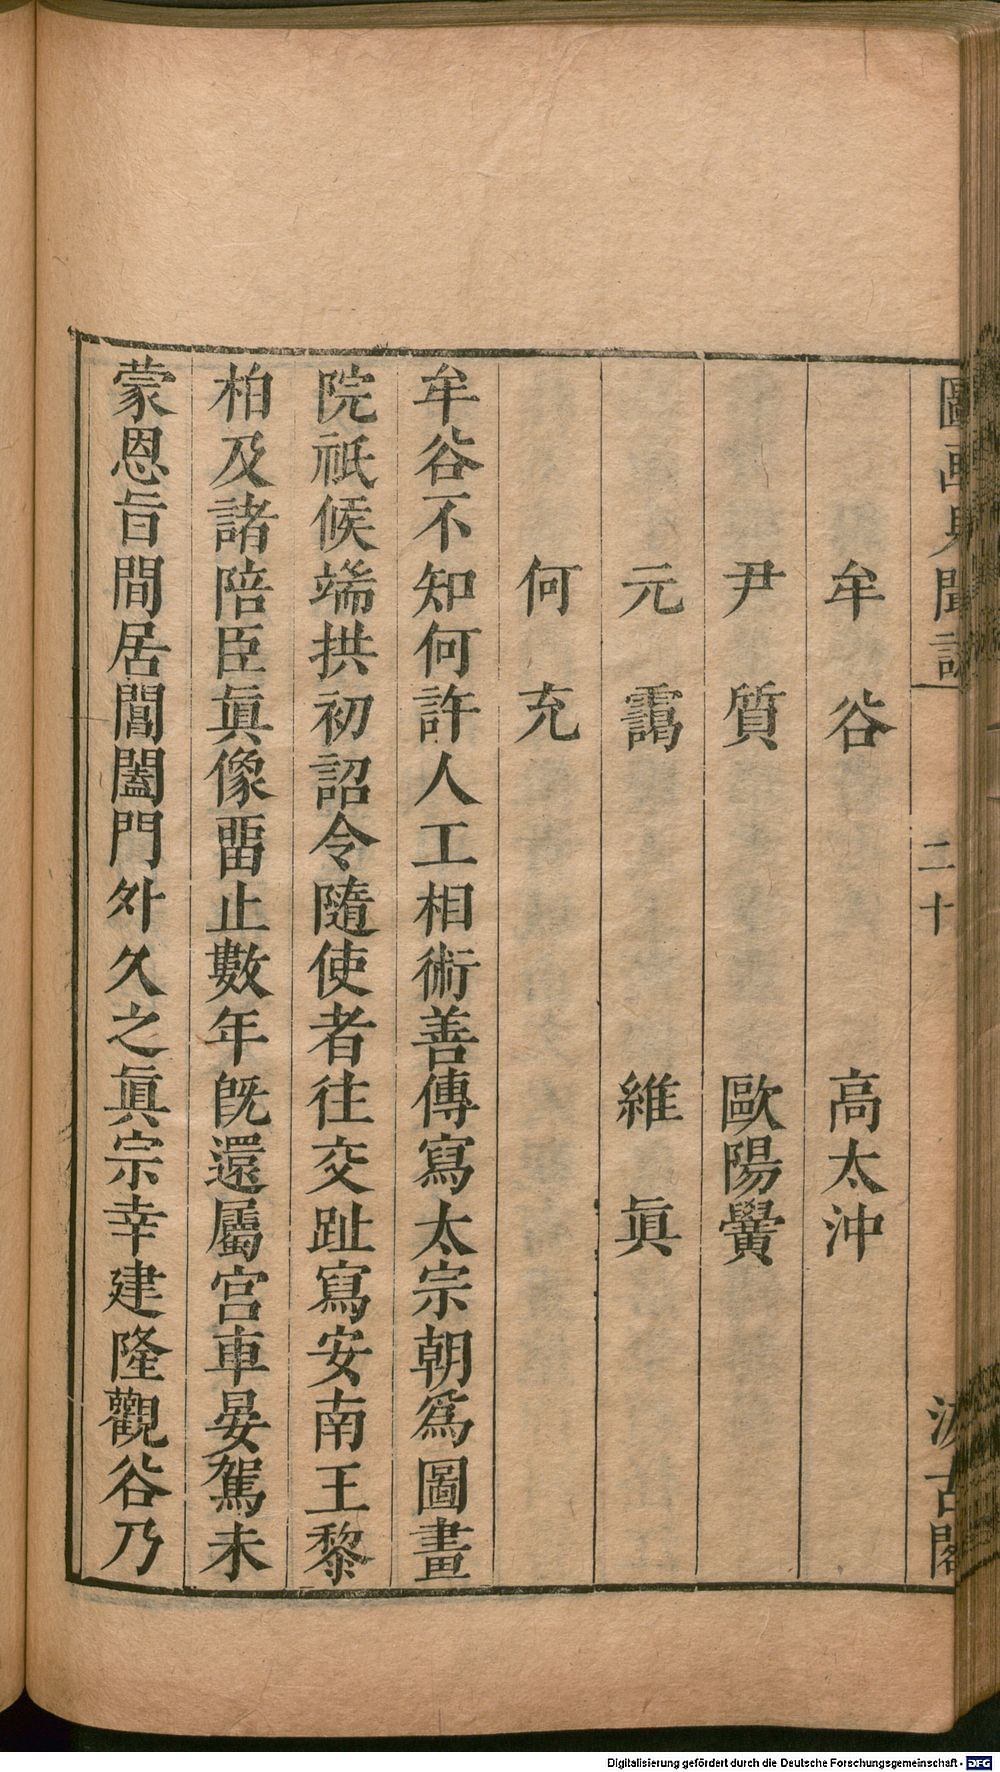 圖畫見聞誌
二十
汲古閣
牟谷 高太沖
尹質 歐陽黌
元靄 維眞
何充
牟谷不知何許人工相術善傳寫太宗朝爲圖畫
院祇候端拱初詔令隨使者往交趾寫安南王黎
柏及諸陪臣眞像畱止數年旣還屬宫車晏駕未
蒙恩旨閒居閶闔門外久之眞宗幸建隆觀谷乃
Digitalisierung gefördert durch die Deutsche Forschungsgemeinschaft - DFG